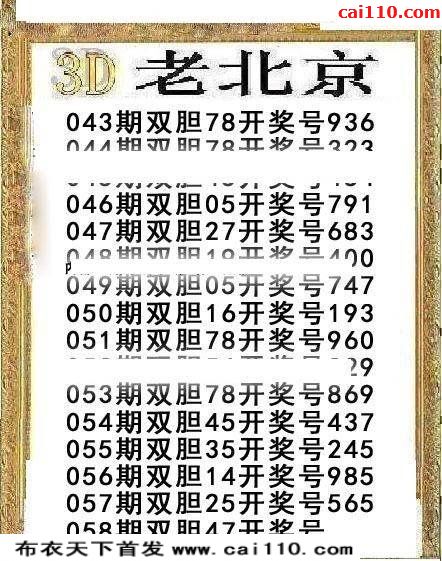 cai110.com
3D 老北京
043期双胆78开奖号936
044期双胆78开奖号323
046期双胆05开奖号791
047期双胆27开奖号683
048期双胆19开奖号400
049期双胆05开奖号747
050期双胆16开奖号193
051期双胆78开奖号960
053期双胆78开奖号869
054期双胆45开奖号437
055期双胆35开奖号245
056期双胆14开奖号985
057期双胆25开奖号565
058期双胆47开奖号
布衣天下首发 www.cai110.com